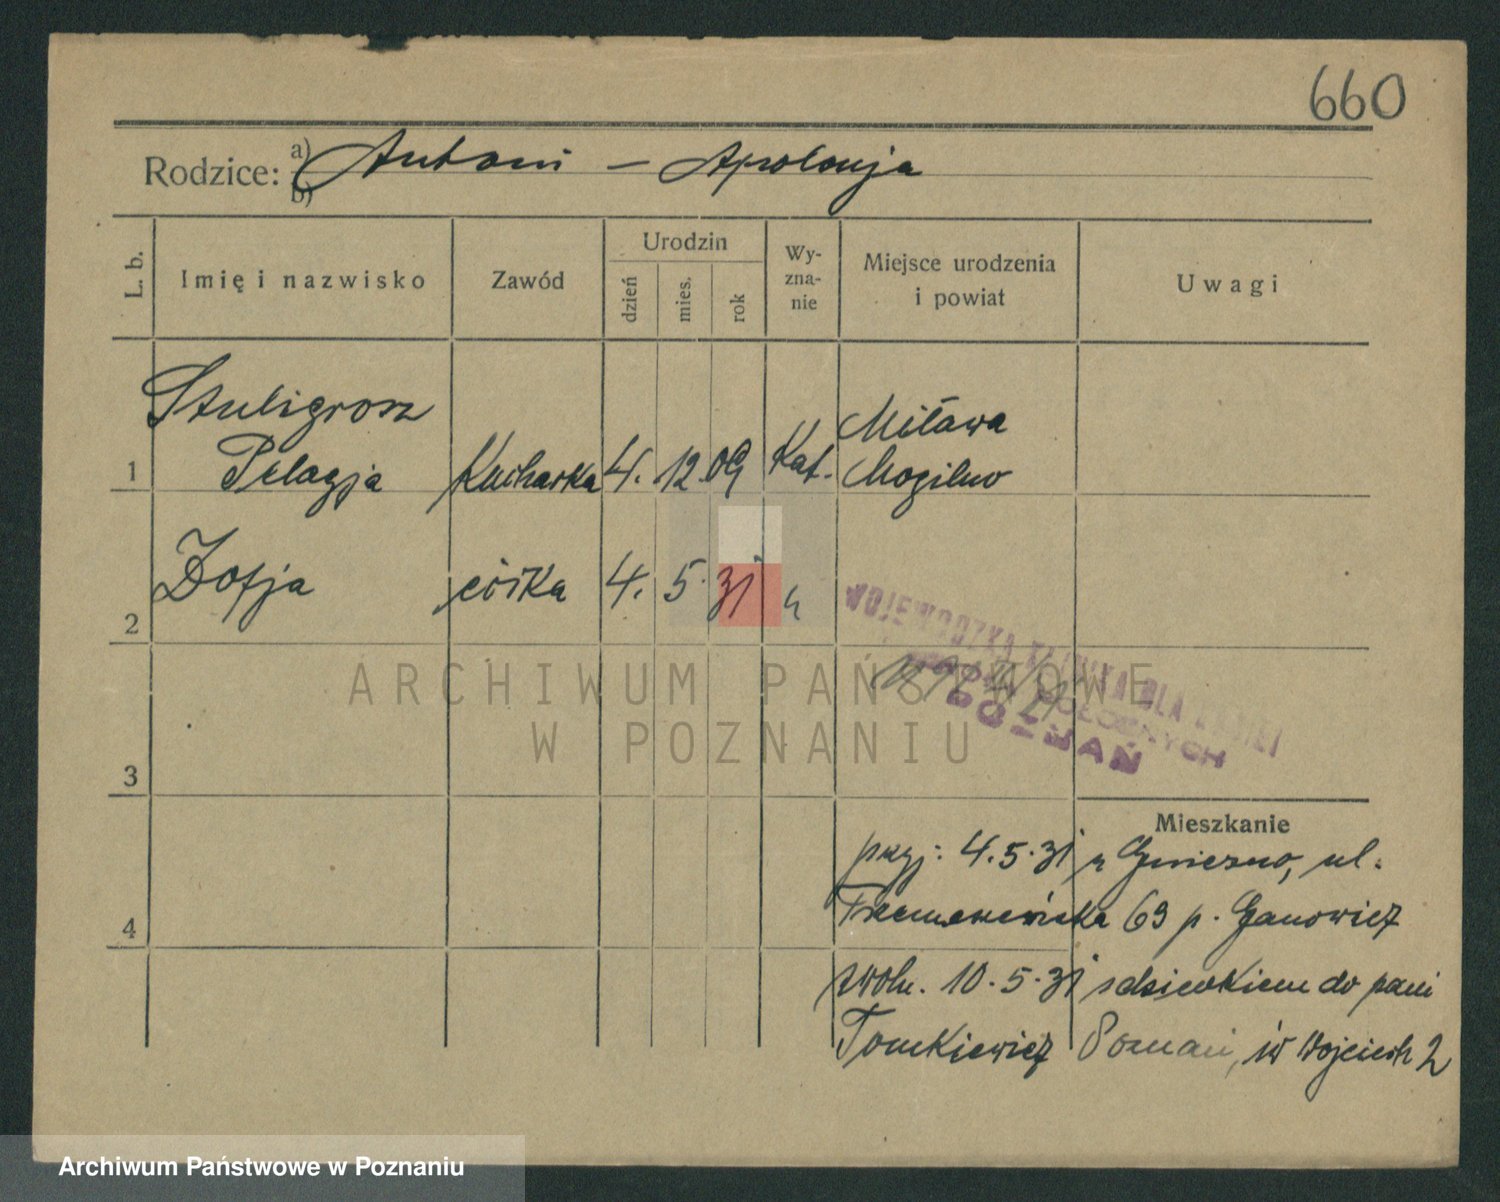 660
Rodzice: a) Antoni – Apolonja
b)
L. b.
Imię i nazwisko
Zawód
Urodzin
dzień
mies.
rok
Wy-
zna-
nie
Miejsce urodzenia
i powiat
Uwagi
Stuligrosz
Pelagja
1
Kucharka
4. 12. 09
Kat.
Miława
Mogilno
2
Zofja
córka
4. 5. 31
"
WOJEWÓDZKA KLINIKA DLA KOBIET
POZNAŃ
ARCHIWUM PAŃSTWOWE
W POZNANIU
3
Mieszkanie
przyj: 4.5.31 z Gniezno, ul.
Trzemeszeńska 69 p. Ganowicz
4
zwoln. 10.5.31 z dzieckiem do pani
Tomkiewicz Poznań, św Wojciech 2
Archiwum Państwowe w Poznaniu